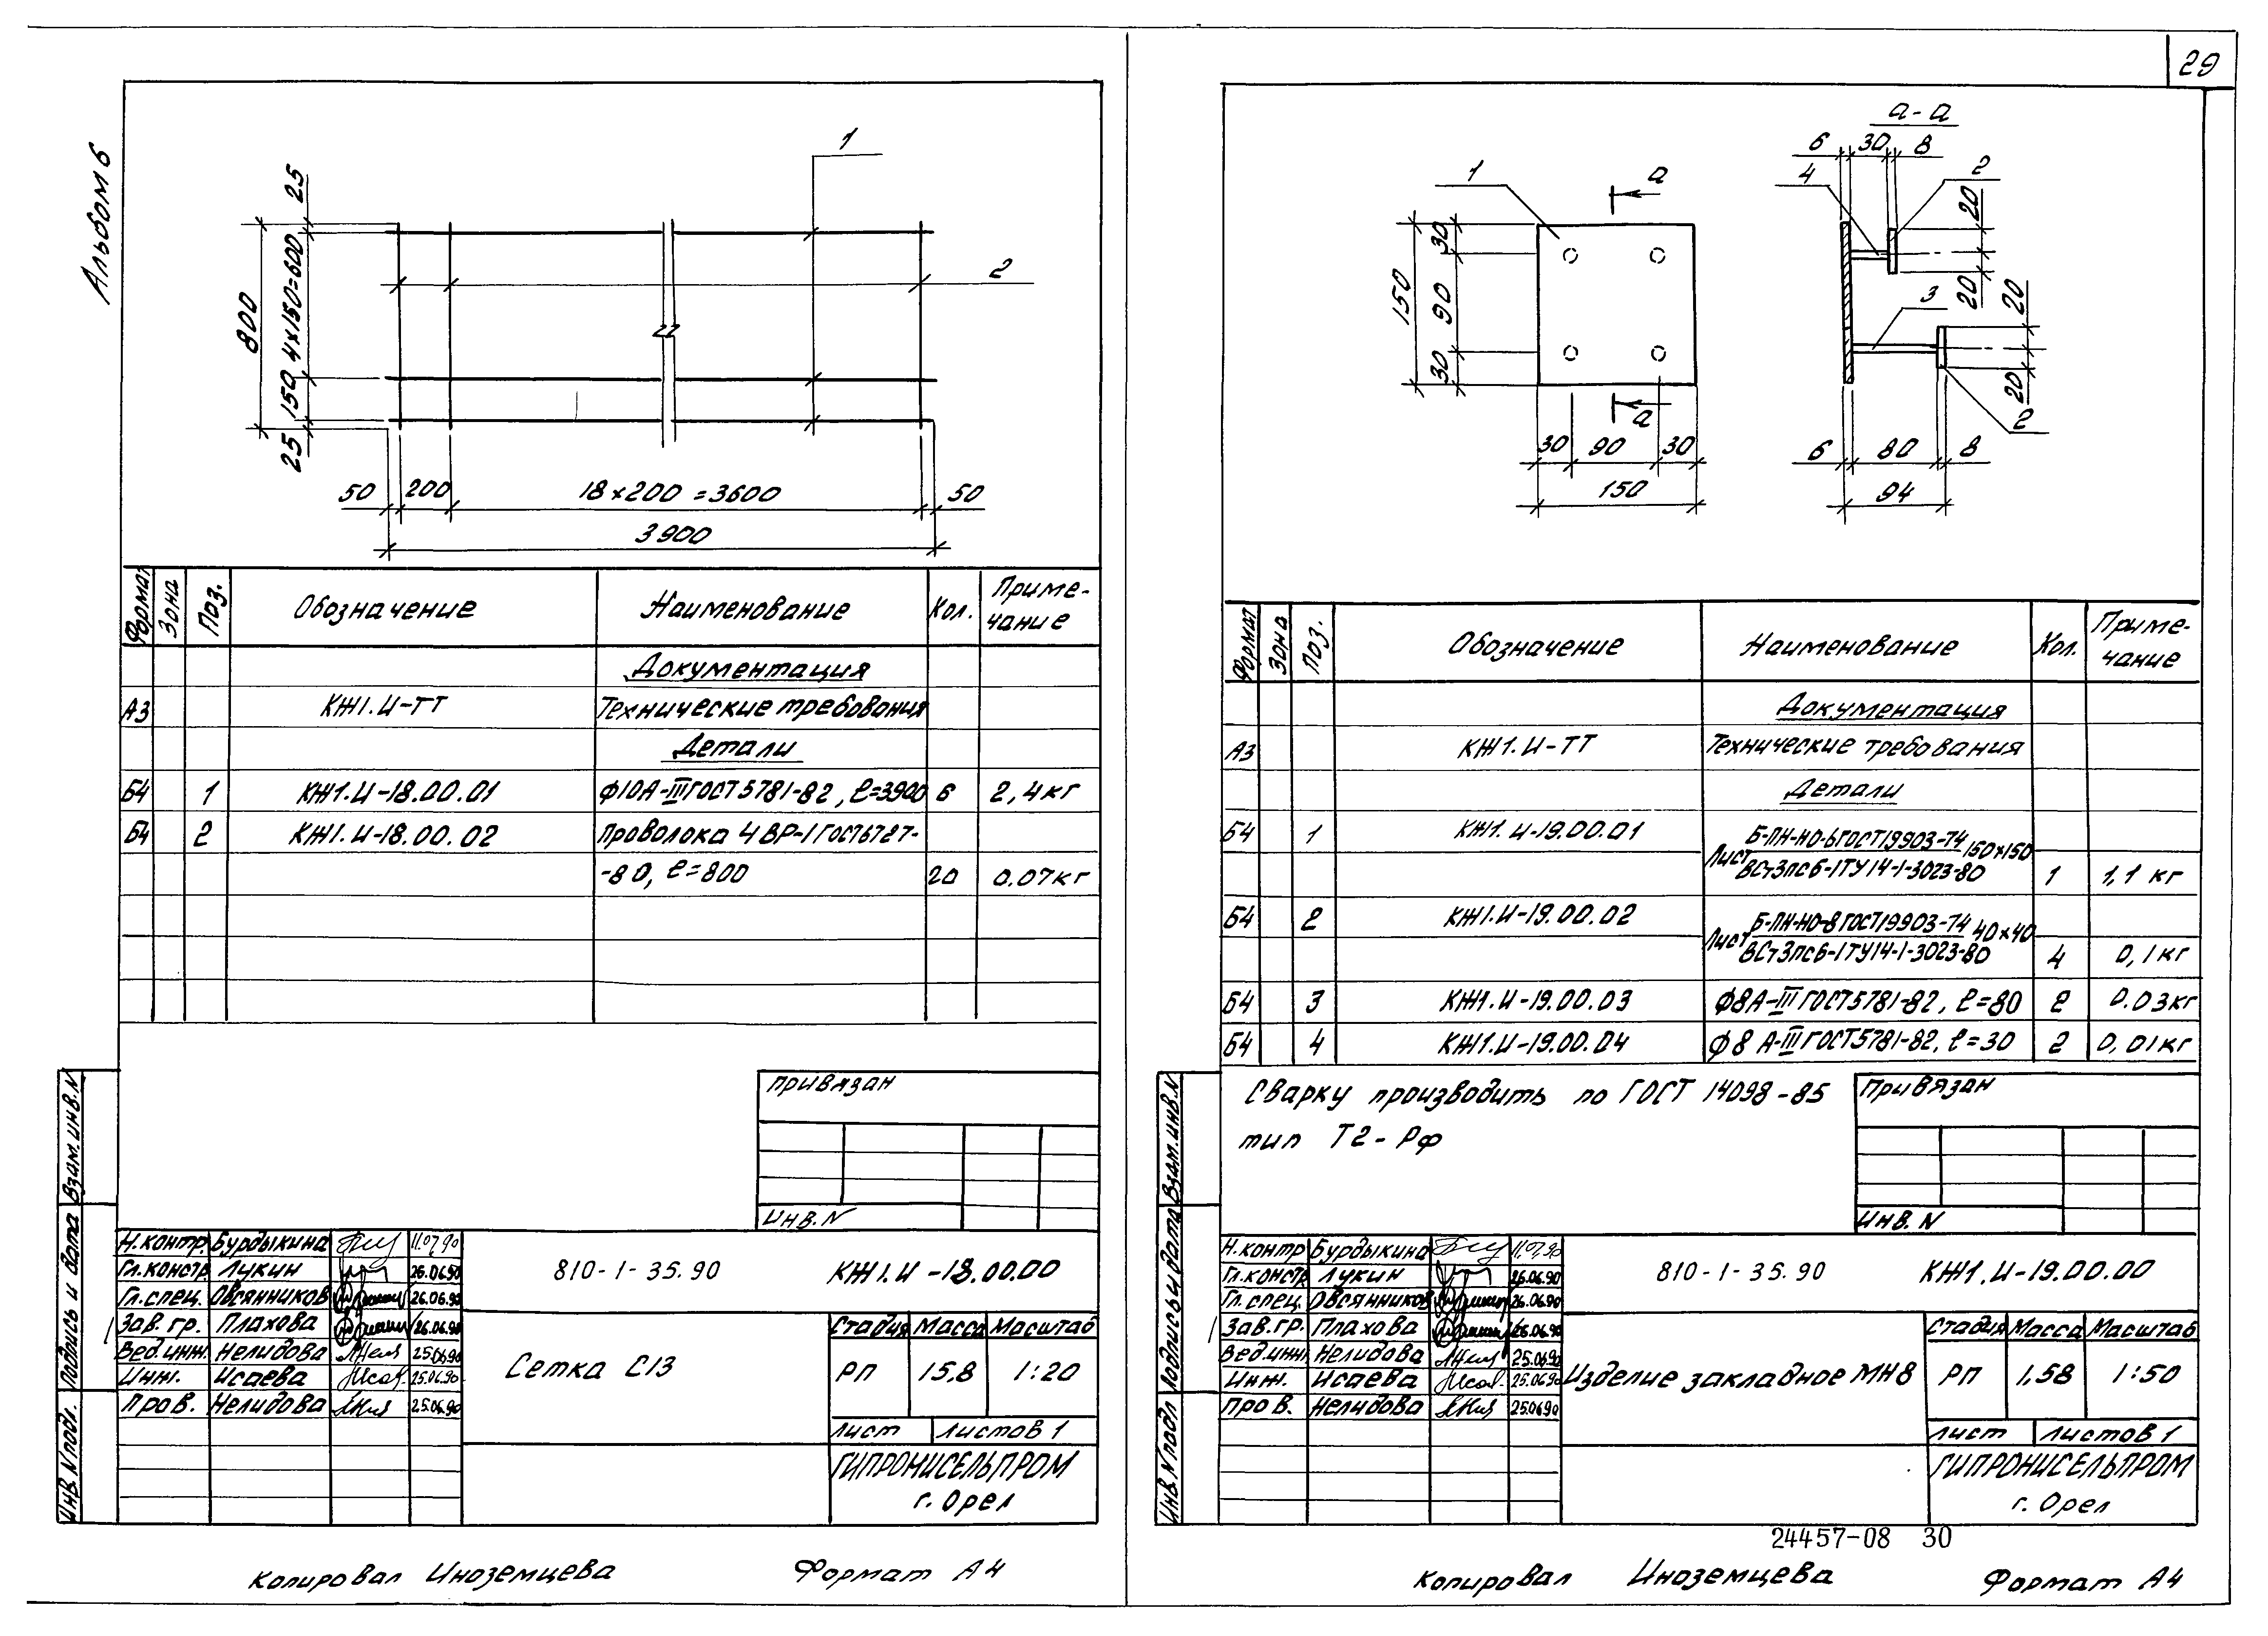 29
Альбом 6
1
2
25
4х150=600
150
25
800
50
200
18х200=3600
50
3900
Формат Зона Поз. Обозначение Наименование Кол. Примечание
Документация
А3 КЖ1.И-ТТ Технические требования
Детали
Б4 1 КЖ1.И-18.00.01 Ф10А-III ГОСТ 5781-82, ℓ=3900 6 2,4 кг
Б4 2 КЖ1.И-18.00.02 Проволока 4ВР-1 ГОСТ 6727-
-80, ℓ=800 20 0.07кг
Привязан
Инв. N
Взам. инв. N
Подпись и дата
Инв. N подл.
Н.контр. Бурдыкина 11.07.90
Гл.констр. Лукин 26.06.90
Гл.спец. Овсянников 26.06.90
Зав. гр. Плахова 26.06.90
Вед.инж. Нелидова 25.06.90
Инж. Исаева 25.06.90
Пров. Нелидова 25.06.90
810-1-35.90 КЖ1.И-18.00.00
Сетка С13
Стадия Масса Масштаб
РП 15,8 1:20
Лист Листов 1
ГИПРОНИСЕЛЬПРОМ
г. Орел
Копировал Иноземцева Формат А4
а-а
6 30 8
1
4
2
а
20
20
3
20
20
2
30
90
30
150
а
30 90 30
150
6 80 8
94
Формат Зона Поз. Обозначение Наименование Кол. Примечание
Документация
А3 КЖ1.И-ТТ Технические требования
Детали
Б4 1 КЖ1.И-19.00.01 Лист Б-ПН-НО-6 ГОСТ 19903-74 150х150
ВСт3пс6-1 ТУ 14-1-3023-80 1 1,1 кг
Б4 2 КЖ1.И-19.00.02 Лист Б-ПН-НО-8 ГОСТ 19903-74 40х40
ВСт3пс6-1 ТУ 14-1-3023-80 4 0,1кг
Б4 3 КЖ1.И-19.00.03 Ф8А-III ГОСТ 5781-82, ℓ=80 2 0.03кг
Б4 4 КЖ1.И-19.00.04 Ф8 А-III ГОСТ 5781-82, ℓ=30 2 0,01кг
Сварку производить по ГОСТ 14098-85
тип Т2-Рф
Привязан
Инв. N
Взам. инв. N
Подпись и дата
Инв. N подл
Н.контр Бурдыкина 11.07.90
Гл.констр Лукин 26.06.90
Гл.спец. Овсянников 26.06.90
Зав.гр. Плахова 26.06.90
Вед.инж. Нелидова 25.06.90
Инж. Исаева 25.06.90
Пров. Нелидова 25.06.90
810-1-35.90 КЖ1.И-19.00.00
Изделие закладное МН8
Стадия Масса Масштаб
РП 1.58 1:50
Лист Листов 1
ГИПРОНИСЕЛЬПРОМ
г. Орел
24457-08 30
Копировал Иноземцева Формат А4